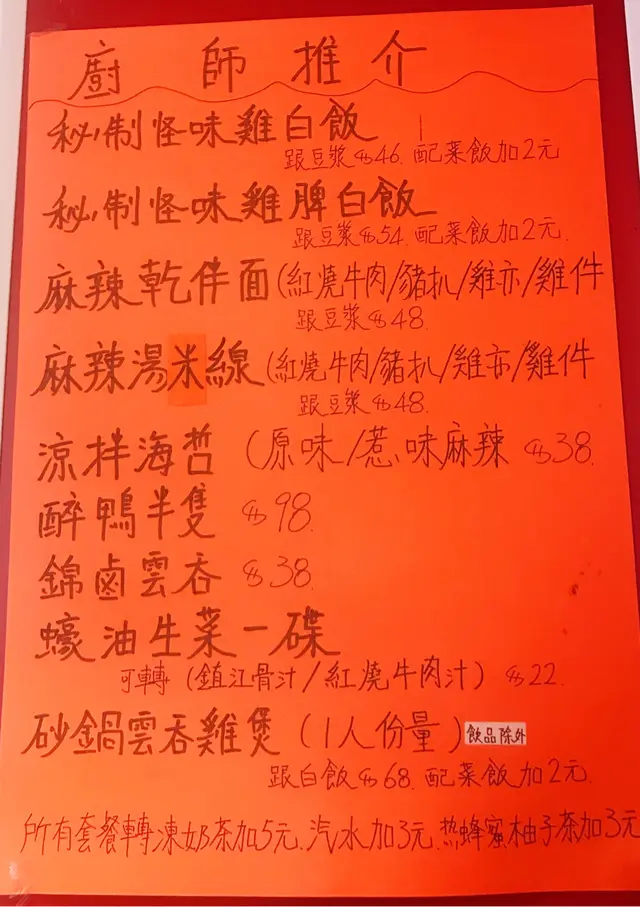 廚師推介
秘制怪味雞白飯
跟豆漿$46. 配菜飯加2元
秘制怪味雞脾白飯
跟豆漿$54. 配菜飯加2元.
麻辣乾伴面(紅燒牛肉/豬扒/雞亦/雞件
跟豆漿$48.
麻辣湯米線(紅燒牛肉/豬扒/雞亦/雞件
跟豆漿$48.
涼拌海哲 (原味/惹味麻辣 $38.
醉鴨半隻 $98.
錦鹵雲吞 $38.
蠔油生菜一碟
可轉 (鎮江骨汁/紅燒牛肉汁) $22.
砂鍋雲吞雞煲 (1人份量) 飲品除外
跟白飯$68. 配菜飯加2元.
所有套餐轉凍奶茶加5元. 汽水加3元. 热蜂蜜柚子茶加3元